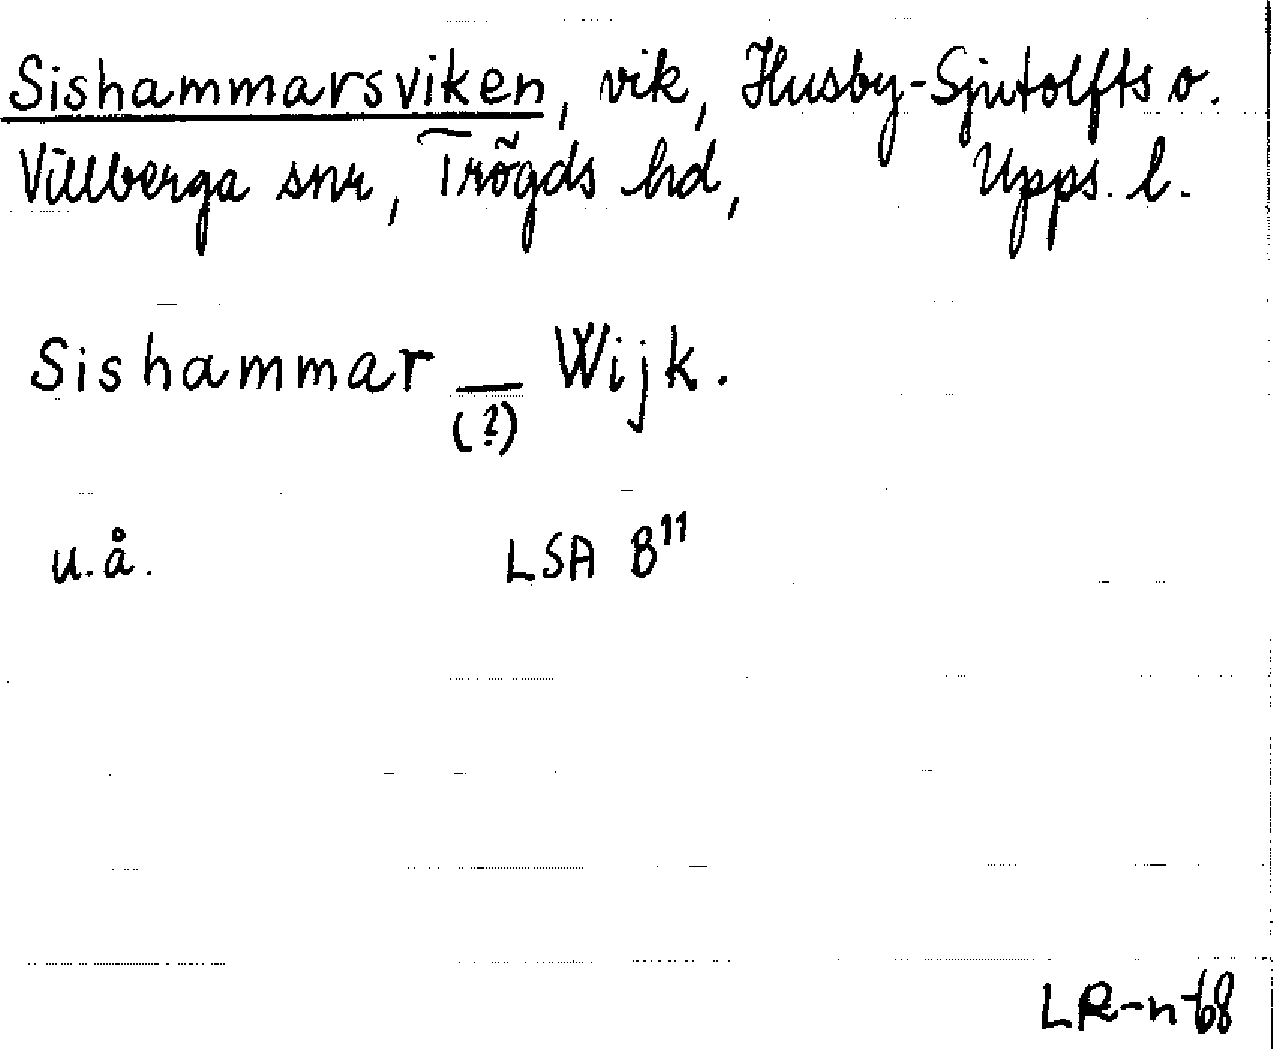 Sishammarsviken, vik, Husby-Sjutolfts o.
Villberga snr, Trögds hd, Upps. l.
Sishammar — Wijk.
(?)
u.å. LSA B¹¹
LR-n-68